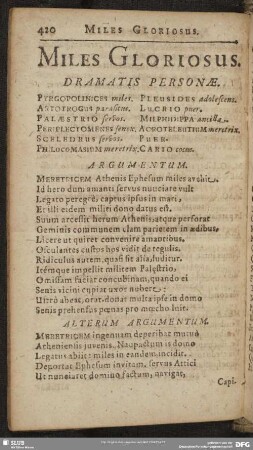 420 MILES GLORIOSUS.
MILES GLORIOSUS.
DRAMATIS PERSONÆ.
PYRGOPOLINICES miles. PLEUSIDES adolescens.
ARTOTROGUS parasitus. LUCRIO puer.
PALÆSTRIO servos. MILPHIDIPPA ancilla.
PERIPLECTOMENES senex. ACROTELEUTIUM meretrix.
SCELEDRUS servos. PUER.
PHILOCOMASIUM meretrix. CARIO cocus.
ARGUMENTUM.
MERETRICEM Athenis Ephesum miles avehit.
Id hero dum amanti servus nunciare vult
Legato peregrè, captus ipsus in mari;
Et illi eidem militi dono datus est.
Suum arcessit herum Athenis, atque perforat
Geminis communem clam parietem in ædibus,
Licere ut quiret convenire amantibus.
Osculantes custos hos vidit de tegulis.
Ridiculus autem, quasi sit alia, luditur.
Itémque impellit militem Palæstrio,
Omissam faciat concubinam, quando ei
Senis vicini cupiat uxor nubere:
Ultrò abeat, orat, donat multa ipse in domo
Senis prehensus pœnas pro mœcho luit.
ALTERUM ARGUMENTUM.
MERETRICEM ingenuam deperibat mutuò
Atheniensis juvenis. Naupactum is domo
Legatus abiit: miles in eandem incidit.
Deportat Ephesum invitam, servus Attici
Ut nunciaret domino factum, navigat,
Capi-
SLUB
DFG